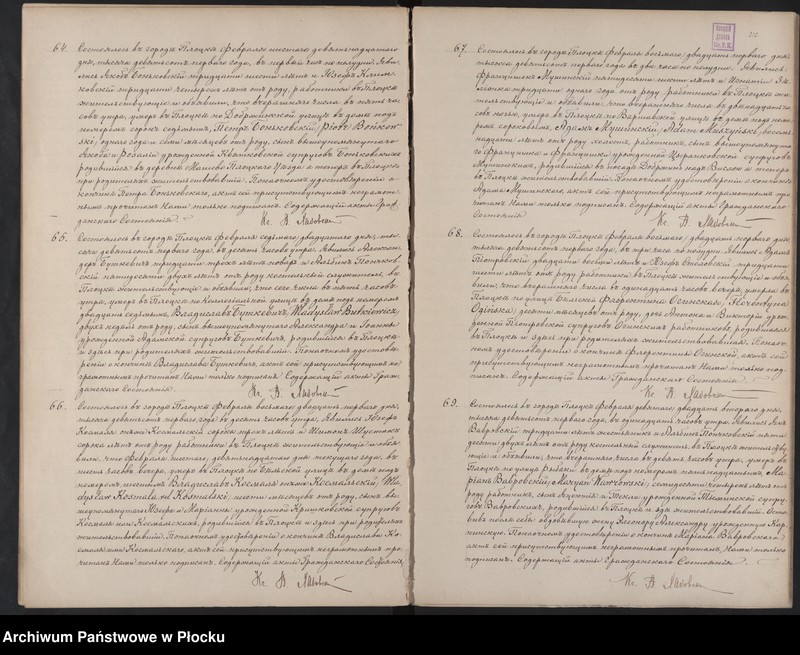 64. Состоялось въ городѣ Плоцкѣ Февраля шестого девятнадцатаго
дня, тысяча девятьсотъ перваго года, въ первый часъ по полудни. Яви-
лись Яковъ Боньковскій тридцати шести лѣтъ и Іосифъ
тридцати четырехъ лѣтъ отъ роду, работники въ Плоцкѣ
жительствующіе и объявили, что вчерашняго числа въ пять ча-
совъ утра, умеръ въ Плоцкѣ по Добржинской улицѣ въ домѣ подъ
номеромъ сорокъ седьмымъ, Петръ Боньковскій /Piotr Bońkow-
ski/ одного года и семи мѣсяцевъ отъ роду, сынъ вышеупомянутаго
Якова и Розаліи урожденной супруговъ Боньковскихъ
родившійся въ деревнѣ Плоцкаго Уѣзда а теперь въ Плоцкѣ
при родителяхъ жительствовавшій. Поналочномъ удостовѣреніи о
кончинѣ Петра Боньковскаго, актъ сей присутствующимъ неграмот-
нымъ прочитанъ Нами только подписанъ. Содержащій акты Граж-
данскаго Состоянія
Кс. В.
65. Состоялось въ городѣ Плоцкѣ Февраля седьмого двадцатаго дня, ты-
сяча девятьсотъ перваго года, въ десять часовъ утра. Явились Алексан-
деръ Буткевичъ тридцати трехъ лѣтъ поваръ и Албинъ Пончков-
скій пятидесяти двухъ лѣтъ отъ роду костельный служитель, въ
Плоцкѣ жительствующіе и объявили, что сего числа въ пять часовъ
утра, умеръ въ Плоцкѣ по Коллегіальной улицѣ въ домѣ подъ номеромъ
двадцать седьмымъ, Владиславъ Буткевичъ, Władysław Butkiewicz,
двухъ недѣль отъ роду, сынъ вышеупомянутаго Александра и Іоанны
урожденной Адамской супруговъ Буткевичъ, родившійся въ Плоцкѣ
и здѣсь при родителяхъ жительствовавшій. Поналочномъ удостовѣ-
реніи о кончинѣ Владислава Буткевичъ, актъ сей присутствующимъ не-
грамотнымъ прочитанъ Нами только подписанъ. Содержащій акты Граж-
данскаго Состоянія.
Кс. В.
66. Состоялось въ городѣ Плоцкѣ Февраля восьмого двадцать перваго дня,
тысяча девятьсотъ перваго года въ десять часовъ утра. Явились Іосифъ
Космаля онъ же Космальскій сорокъ трехъ лѣтъ и Шимонъ Шустакъ
сорока лѣтъ отъ роду работники въ Плоцкѣ жительствующіе и объя-
вили, что Февраля шестого, девятнадцатаго дня текущаго года, въ
шесть часовъ вечера, умеръ въ Плоцкѣ по Бѣльской улицѣ въ домѣ подъ
номеромъ шестымъ Владиславъ Космаля онъ же Космальскій, Wła-
dysław Kosmala vel Kosmalski, шести мѣсяцевъ отъ роду, сынъ вы-
шеупомянутаго Іосифа и Маріанны урожденной супруговъ
Космаля они же Космальскихъ, родившійся въ Плоцкѣ и здѣсь при родителяхъ
жительствовавшій. Поналочномъ удостовѣреніи о кончинѣ Владислава Ко-
смаля онъ же Космальскаго, актъ сей присутствующимъ неграмотнымъ про-
читанъ Нами только подписанъ. Содержащій акты Гражданскаго Состоянія.
Кс. В.
67. Состоялось въ городѣ Плоцкѣ Февраля восьмого /двадцать перваго/ дня
тысяча девятьсотъ перваго года въ два часа по полудни. Явились
Францишекъ Мушинскій пятидесяти шести лѣтъ и Игнатій
тридцати одного года отъ роду, работники въ Плоцкѣ жи-
тельствующіе и объявили, что вчерашняго числа въ двѣнадцать ча-
совъ ночью, умеръ въ Плоцкѣ по Варшавской улицѣ въ домѣ подъ номе-
ромъ сороковымъ, Адамъ Мушинскій /Adam Muszyński/, восем-
надцати лѣтъ отъ роду холостъ, работникъ, сынъ вышеупомянута-
го Францишка и Францишки урожденной супруговъ
Мушинскихъ, родившійся въ городѣ Добржинѣ надъ Вислою а теперь
въ Плоцкѣ жительствовавшій. Поналочномъ удостовѣреніи о кончинѣ
Адама Мушинскаго, актъ сей присутствующимъ неграмотнымъ про-
читанъ Нами только подписанъ. Содержащій акты Гражданскаго
Состоянія
Кс. В.
68. Состоялось въ городѣ Плоцкѣ Февраля восьмого/ двадцать перваго дня
тысяча девятьсотъ перваго года, въ три часа по полудни. Явились Адамъ
Піотровскій двадцати восьми лѣтъ и Іосифъ тридцати
шести лѣтъ отъ роду, работники въ Плоцкѣ жительствующіе и объя-
вили, что вчерашняго числа въ одинадцать часовъ вечера, умерла въ
Плоцкѣ по улицѣ Бѣльской Флорентина Огинская, /Florentyna
Ogińska/, десяти мѣсяцевъ отъ роду, дочь Антона и Викторіи урож-
денной Піотровской супруговъ Огинскихъ работниковъ, родившаяся
въ Плоцкѣ и здѣсь при родителяхъ жительствовавшая. Поналоч-
номъ удостовѣреніи о кончинѣ Флорентины Огинской, актъ сей
присутствующимъ неграмотнымъ прочитанъ Нами только под-
писанъ. Содержащій акты Гражданскаго Состоянія
Кс. В.
69. Состоялось въ городѣ Плоцкѣ Февраля девятаго /двадцать втораго дня,
тысяча девятьсотъ перваго года, въ одинадцать часовъ утра. Явились Янъ
Вавровскій тридцати лѣтъ и Албинъ Пончковскій пяти-
десяти двухъ лѣтъ отъ роду костельный служитель, въ Плоцкѣ жительству-
ющіе и объявили, что вчерашняго числа въ девять часовъ утра, умеръ въ
Плоцкѣ по улицѣ Рыбаки въ домѣ подъ номеромъ пятнадцатымъ, Ма-
ріанъ Вавровскій /Maryan Wawrowski/, семидесяти четырехъ лѣтъ отъ
роду работникъ, сынъ и Теклы урожденной супру-
говъ Вавровскихъ, родившійся въ Плоцкѣ и здѣсь жительствовавшій. Оста-
вивъ послѣ себя овдовѣвшую жену Элеонору Александру урожденную Кар-
пинскую. Поналочномъ удостовѣреніи о кончинѣ Маріана Вавровскаго,
актъ сей присутствующимъ неграмотнымъ прочитанъ, Нами только
подписанъ. Содержащій акты Гражданскаго Состоянія.
Кс. В.
Archiwum Państwowe w Płocku